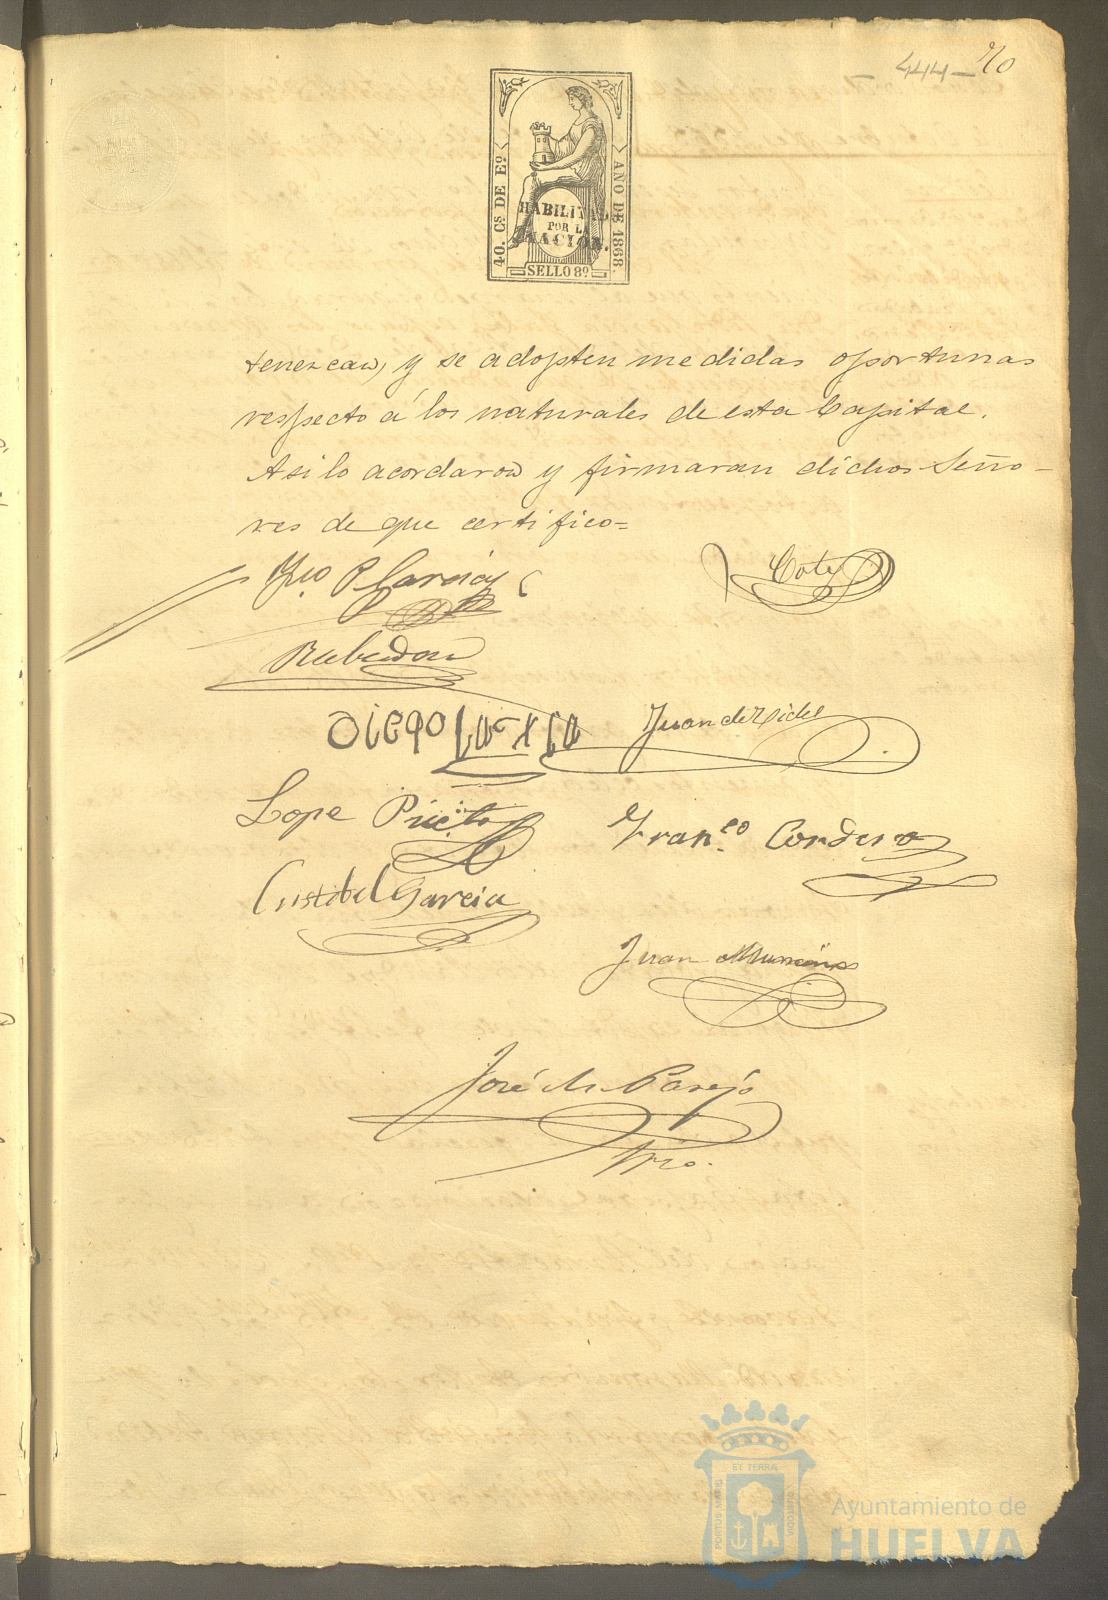 444- 70
40. Cs DE Eo.
AÑO DE 1868.
HABILITA
POR LA
NACION.
SELLO 8º
tenezcan, y se adopten medidas oportunas
respecto á los naturales de esta Capital.
Asi lo acordaron y firmaran dichos Seño-
res de que certifico=
P. Garcia
Cote
Rabadan
Diego
Juan de
Lope Prieto
Franco. Cordero
Cristobal Garcia
Juan
José Ma Parejo
Srio.
PORTUS MARIS
ET TERRÆ
CUSTODIA
Ayuntamiento de
HUELVA